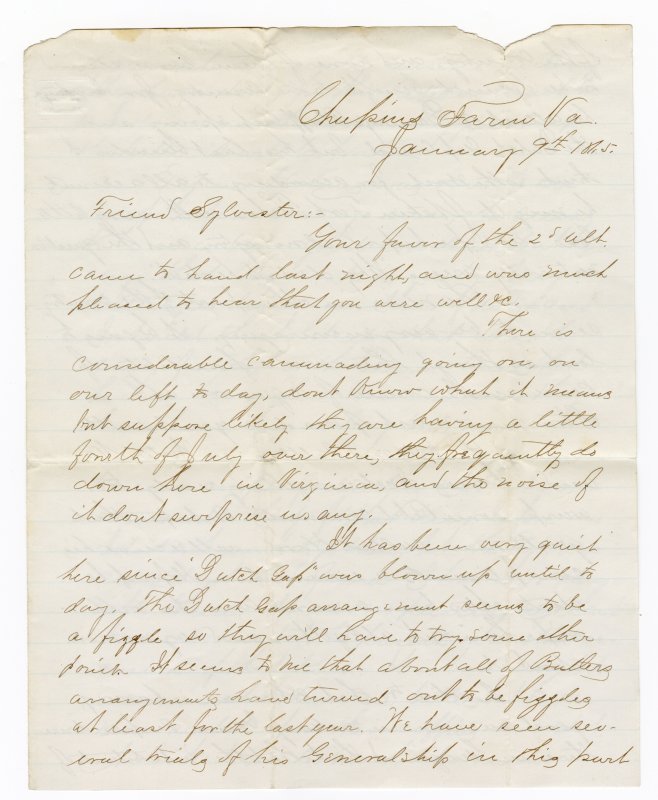 Chapins Farm Va.
January 9th 1865.
Friend Sylvester:-
Your favor of the 2d ult.
came to hand last night, and was much
pleased to hear that you were well &c.
There is
considerable cannonading going on, on
our left to day, dont know what it means
but suppose likely they are having a little
fourth of July over there, they freqauntly do
down here in Virginia, and the noise of
it dont surprise us any.
It has been very quiet
here since "Dutch Gap" was blown up until to
day. The Dutch Gap arrangement seems to be
a fizzle so they will have to try some other
point. It seems to me that about all of Butlers
arrangements have turned out to be fizzles
at least for the last year. We have seen sev-
eral trials of his Generalship in this part